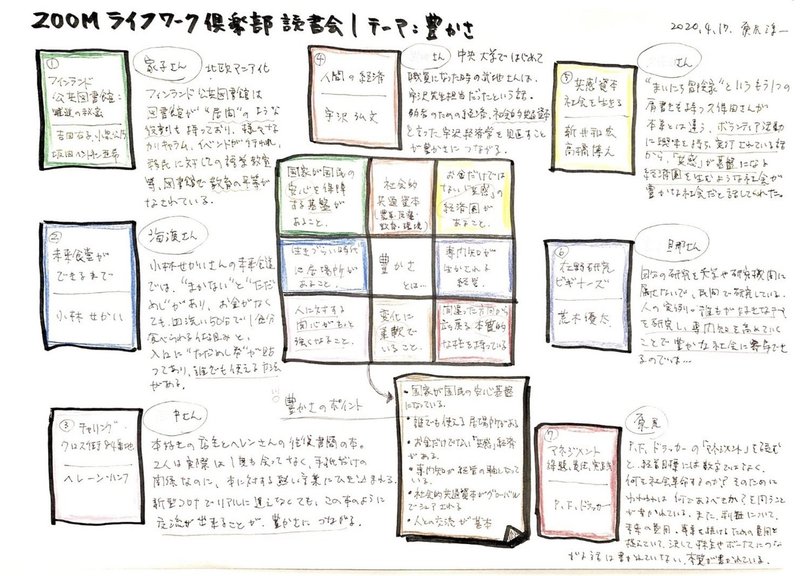 ZOOM ライフワーク倶楽部 読書会 / テーマ：豊かさ
2020.4.17.
①
フィンランド
公共図書館：
躍進の秘密
吉田右子、小泉公乃
坂田ヘントネン亜希
さん 北欧マニア化
フィンランド公共図書館は
図書館が"居間"のような
役割も持っており、様々な
カリキュラム、イベントが行われ、
難民に対しての授業、教室
等、図書館で教育の平等が
なされている。
②
未来食堂が
できるまで
小林せかい
さん
小林せかいさんの未来食堂
では、"まかない"と"ただ
めし"があり、お金がなく
ても皿洗い50分で1食分
食べられる仕組みと、
入口に"ただめし券"が貼
つてあり、誰でも使える方法
がある。
③
チャリング・
クロス街84番地
ヘレーン・ハンフ
Pさん
本好きの店主とヘレンさんの往復書簡の本。
2人は実際は1度も会ってなく、手紙だけの
関係なのに、本に対する熱い言葉にひき込まれる。
新型コロナでリアルに逢えなくても、この本のように
交流が出来ることが、豊かさにつながる。
④
人間の経済
宇沢弘文
さん 中央大学ではじめて
職員になった時の
宇沢先生担当だったという話。
のための経済、社会的共通資本
と言った宇沢経済学を見直すこと
が豊かさにつながる。
⑤
共感資本
社会を生きる
新井和宏
高橋博之
さん
"まいにち冒険家"というもう1つの
肩書きを持つ さんが
本業とは違う、ボランティア活動
に興味を持ち、実行されている話
から、「共感」が基盤になる
経済圏を生むような社会が
豊かな社会だと話してくれた。
⑥
在野研究
ビギナーズ
荒木優太
旦那さん
自分の研究を大学や研究機関に
属さないで、民間で研究している。
人の実例。誰もが好きなテーマ
を研究し、専門知を高めていく
ことで豊かな社会に寄与でき
るのでは…
⑦
マネジメント
P.F.ドラッカー
P.F.ドラッカーの「マネジメント」を読むと、
経営目標には数字ではなく、
何を社会奉仕するのか？そのために
われわれは何であるべきか？を問うこと
が書かれている。また、利益について、
未来の費用、事業を続けるための費用と
捉えていて、決して株主やボーナスにつな
がる話は書かれていない。本質が書かれている。
国家が国民の
安心を保障
する基盤が
あること。
社会的
共通資本
(農業・医療・
教育・環境)
お金だけでは
ない「共感」の
経済圏が
あること。
生きづらい時代
に居場所が
あること。
豊かさ
とは…
専門知が
生かされる
経営。
人に対する
関心がもっと
強くなること。
変化に
柔軟で
いること。
間違った方向から
立ち戻る本質的
な柱を持っている
豊かさのポイント
・国家が国民の安心基盤
になっている。
・誰でも使える居場所がある
・お金だけでない「共感」経済
がある。
・専門知が経営の軸となって
いる。
・社会的共通資本がグローバル
でシェアされる
・人との交流が基本